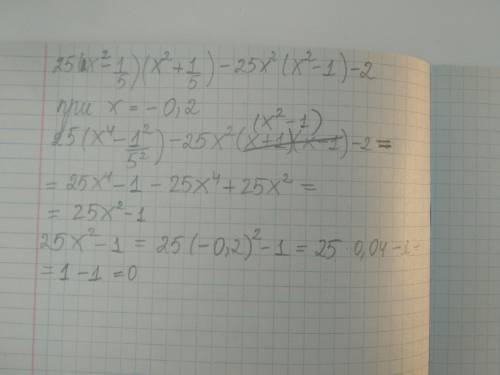 25(x² - 1/5)(x² + 1/5) - 25x² (x² - 1) - 2
при x = - 0,2
(x² - 1)
25(x⁴ - 1²/5²) - 25x² (x+1)(x-1) - 2 =
= 25x⁴ - 1 - 25x⁴ + 25x² =
= 25x² - 1
25x² - 1 = 25 (-0,2)² - 1 = 25 · 0,04 - 1 =
= 1 - 1 = 0